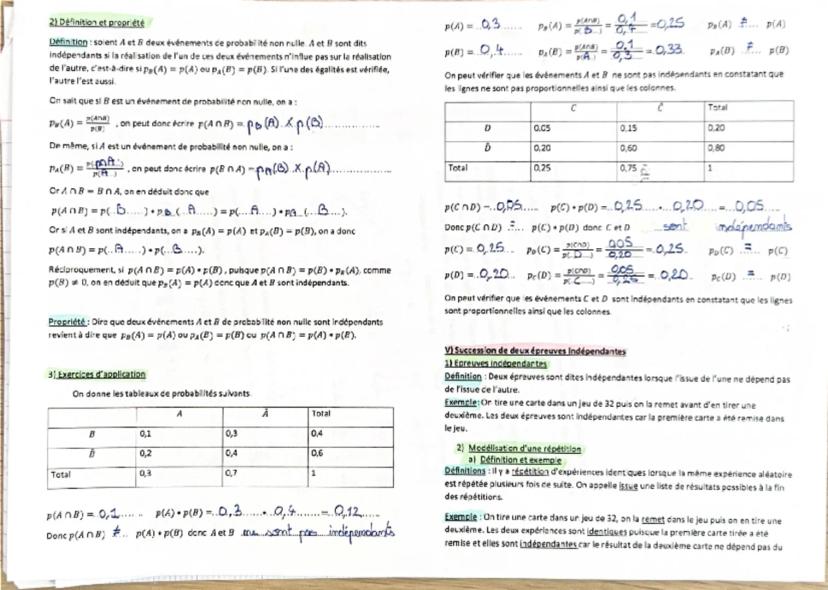 2) Définition et propriété
Définition : soient A et B deux événements de probabilité non nulle. A et B sont dits
indépendants si la réalisation de l'un de ces deux événements n'influe pas sur la réalisation
de l'autre, c'est-à-dire si p_B(A) = p(A) ou p_A(B) = p(B). Si l'une des égalités est vérifiée,
l'autre l'est aussi.
On sait que si B est un événement de probabilité non nulle, on a :
p_B(A) = p(A∩B)/p(B) , on peut donc écrire p(A ∩ B) = p_B(A) × p(B)
De même, si A est un événement de probabilité non nulle, on a :
p_A(B) = p(B∩A)/p(A) , on peut donc écrire p(B ∩ A) = p_A(B) × p(A)
Or A ∩ B = B ∩ A, on en déduit donc que
p(A ∩ B) = p(..B..) • p_B(..A..) = p(..A..) • p_A(..B..).
Or si A et B sont indépendants, on a p_B(A) = p(A) et p_A(B) = p(B), on a donc
p(A ∩ B) = p(..A..) • p(..B..).
Réciproquement, si p(A ∩ B) = p(A) • p(B), puisque p(A ∩ B) = p(B) • p_B(A), comme
p(B) ≠ 0, on en déduit que p_B(A) = p(A) donc que A et B sont indépendants.
Propriété : Dire que deux événements A et B de probabilité non nulle sont indépendants
revient à dire que p_B(A) = p(A) ou p_A(B) = p(B) ou p(A ∩ B) = p(A) • p(B).
3) Exercices d'application
On donne les tableaux de probabilités suivants
A Ā Total
B 0,1 0,3 0,4
B̄ 0,2 0,4 0,6
Total 0,3 0,7 1
p(A ∩ B) = 0,1 p(A) • p(B) = 0,3 • 0,4 = 0,12
Donc p(A ∩ B) ≠ p(A) • p(B) donc A et B ne sont pas indépendants
p(A) = 0,3 p_B(A) = p(A∩B)/p(B) = 0,1/0,4 = 0,25 p_B(A) ≠ p(A)
p(B) = 0,4 p_A(B) = p(A∩B)/p(A) = 0,1/0,3 = 0,33 p_A(B) ≠ p(B)
On peut vérifier que les événements A et B ne sont pas indépendants en constatant que
les lignes ne sont pas proportionnelles ainsi que les colonnes.
C C̄ Total
D 0,05 0,15 0,20
D̄ 0,20 0,60 0,80
Total 0,25 0,75 1
p(C ∩ D) = 0,05 p(C) • p(D) = 0,25 • 0,20 = 0,05
Donc p(C ∩ D) = p(C) • p(D) donc C et D sont indépendants
p(C) = 0,25 p_D(C) = p(C∩D)/p(D) = 0,05/0,20 = 0,25 p_D(C) = p(C)
p(D) = 0,20 p_C(D) = p(C∩D)/p(C) = 0,05/0,25 = 0,20 p_C(D) = p(D)
On peut vérifier que les événements C et D sont indépendants en constatant que les lignes
sont proportionnelles ainsi que les colonnes.
V) Succession de deux épreuves indépendantes
1) Epreuves indépendantes
Définition : Deux épreuves sont dites indépendantes lorsque l'issue de l'une ne dépend pas
de l'issue de l'autre.
Exemple : On tire une carte dans un jeu de 32 puis on la remet avant d'en tirer une
deuxième. Les deux épreuves sont indépendantes car la première carte a été remise dans
le jeu.
2) Modélisation d'une répétition
a) Définition et exemple
Définitions : Il y a répétition d'expériences identiques lorsque la même expérience aléatoire
est répétée plusieurs fois de suite. On appelle issue une liste de résultats possibles à la fin
des répétitions.
Exemple : On tire une carte dans un jeu de 32, on la remet dans le jeu puis on en tire une
deuxième. Les deux expériences sont identiques puisque la première carte tirée a été
remise et elles sont indépendantes car le résultat de la deuxième carte ne dépend pas du